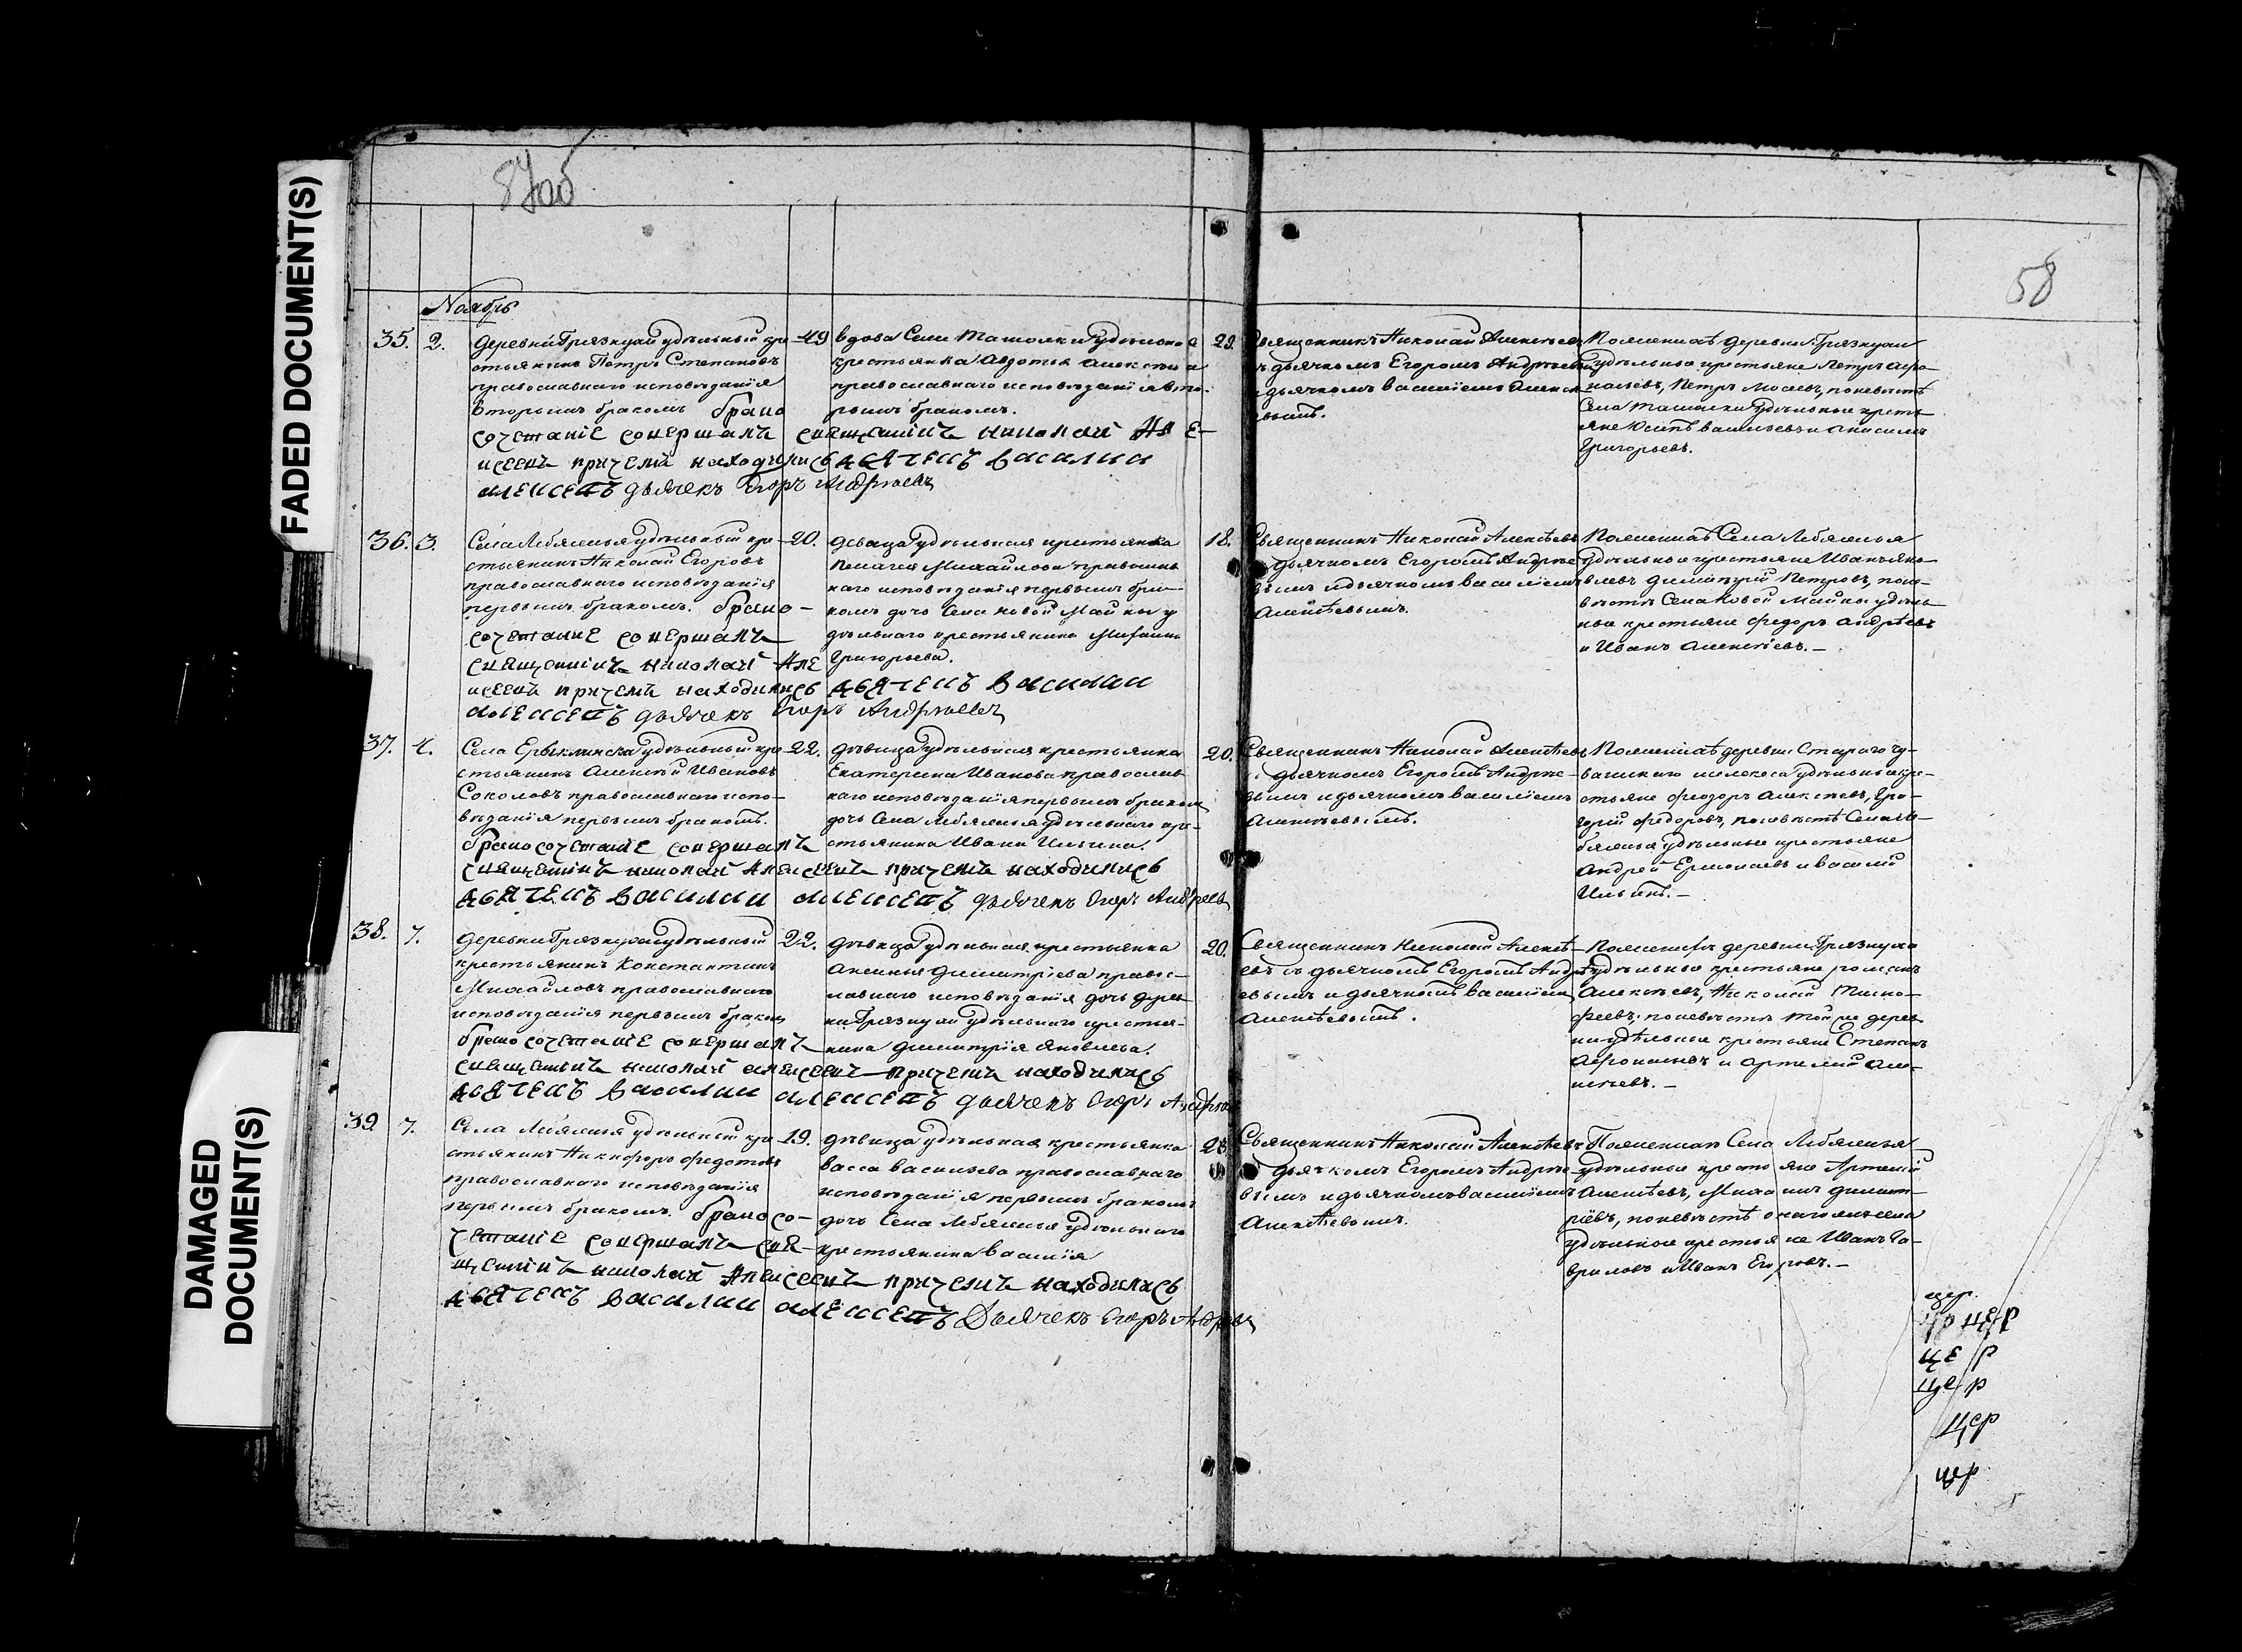 FADED DOCUMENT(S)
DAMAGED
DOCUMENT(S)
58
Ноябрь
35. 2.
деревни Грязнухи удѣльный кре-
стьянинъ Петръ Степановъ
православнаго исповѣданія
вторымъ бракомъ брако
сочетаніе совершалъ священникъ николай Але-
ксеевъ причемъ находились дьячекъ Василии
алексеевъ дьячекъ Егоръ Андреевъ
49
вдова Села Ташолки удѣльная
крестьянка Авдотья Алексѣева
православнаго исповѣданія вто-
рымъ бракомъ.
29.
Священникъ Николай Алексѣевъ
съ дьячкомъ Егоромъ Андреевымъ
и дьячкомъ василіемъ Алексѣ-
евымъ.
По женихѣ деревни Грязнухи
удѣльные крестьяне Петръ Афо-
насьевъ, Петръ Мосеевъ, по невѣстѣ
Села Ташолки удѣльные кресть-
яне Осипъ васильевъ и Анисимъ
Григорьевъ.
36. 3.
Села Лебяжья удѣльный кре-
стьянинъ Николай Егоровъ
православнаго исповѣданія
первымъ бракомъ. брако-
сочетание совершалъ
священникъ николай Але
ксеевъ причемъ находились дьячекъ Василии
алексеевъ дьячекъ Егоръ Андреевъ
20.
дѣвица удѣльная крестьянка
Пелагея Михайлова православ-
наго исповѣданія первымъ бра-
комъ дочь Села новой Майны у
дѣльнаго крестьянина Михаила
Григорьева.
18.
Священникъ Николай Алексѣевъ
дьячкомъ Егоромъ Андрее-
вымъ и дьячкомъ василіемъ
Алексѣевымъ.
По женихѣ Села Лебяжья
удѣльные крестьяне Иванъ Яко-
влевъ Димитрій Петровъ, по не-
вѣстѣ Села Новой Майны удѣль-
ные крестьяне Федоръ Андреевъ
и Иванъ Алексѣевъ.—
37. 4.
Села Ерыклинска удѣльный кре-
стьянинъ Алексѣй Ивановъ
Соколовъ православнаго испо-
вѣданія первымъ бракомъ.
бракосочетание совершалъ
священникъ николай Алексеевъ причемъ находились
дьячекъ Василии алексеевъ дьячекъ Егоръ Андреевъ
22.
дѣвица удѣльная крестьянка
Екатерина Иванова православ-
наго исповѣданія первымъ бракомъ
дочь Села Лебяжья удѣльнаго кре-
стьянина Ивана Ильина.
20.
Священникъ Николай Алексѣевъ
съ дьячкомъ Егоромъ Андрее-
вымъ и дьячкомъ василіемъ
Алексѣевымъ.
По женихѣ деревни Стараго чу-
вашскаго мелекеса удѣльные кре-
стьяне Феодоръ Алексѣевъ, Гри-
горій Федоровъ, по невѣстѣ Села Ле-
бяжья удѣльные крестьяне
Андрей Ермолаевъ и василій
Ильинъ.—
38. 7.
деревни Грязнухи удѣльный
крестьянинъ Константинъ
Михайловъ православнаго
исповѣданія первымъ бракомъ
бракосочетание совершалъ
священникъ николай алексеевъ причемъ находились
дьячекъ Василии алексеевъ дьячекъ Егоръ Андреев
22.
дѣвица удѣльная крестьянка
Аксинья Димитріева правос-
лавнаго исповѣданія дочь дерев-
ни Грязнухи удѣльнаго крестья-
нина Димитрія Яковлева.
20.
Священникъ Николай Алексѣ-
евъ съ дьячкомъ Егоромъ Андре-
евымъ и дьячкомъ василіемъ
Алексѣевымъ.
По женихѣ деревни Грязнухи
удѣльные крестьяне романъ
Алексѣевъ, Николай Тимо-
феевъ, по невѣстѣ той же дерев-
ни удѣльные крестьяне Степанъ
Афонасьевъ и Артемій Але-
ксѣевъ.—
39. 7.
Села Лебяжья удѣльный кре-
стьянинъ Никифоръ Федотовъ
православнаго исповѣданія
первымъ бракомъ. брако со-
четание совершалъ свя-
щенникъ николай Алексеевъ причемъ находились
дьячекъ Василии алексеевъ Дьячекъ Егоръ Андреевъ
19.
дѣвица удѣльная крестьянка
васса васильева православнаго
исповѣданія первымъ бракомъ
дочь Села Лебяжья удѣльнаго
крестьянина василія
23.
Священникъ Николай Алексѣевъ
съ дьячкомъ Егоромъ Андрее-
вымъ и дьячкомъ василіемъ
Алексѣевымъ.
По женихѣ Села Лебяжья
удѣльные крестьяне Артемій
Алексѣевъ, Михаилъ Димит-
ріевъ, по невѣстѣ онаго же села
удѣльные крестьяне Иванъ Га-
вриловъ и Иванъ Егоровъ.—
цер.
цер
цер
цер
цер